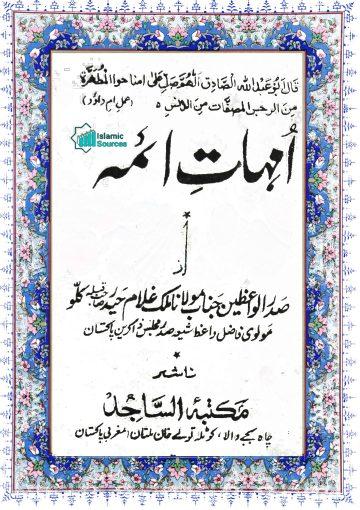 قال ابو عبد الله الصادق اللهم صل علی امنا حوا المطهرة
من الرجس المصفات من الانس ۵
(عمل ام داؤد)
Islamic
Sources
اُمہاتِ ائمہ
از
صدر الواعظین جناب مولانا ملک غلام حیدر صاحب کلو
مولوی فاضل واعظ شیعہ صدر مجلس ذاکرین پاکستان
ناشر
مکتبۂ الساجد
چاہ بمبے والا، کوٹلہ تولے خان ملتان (مغربی پاکستان